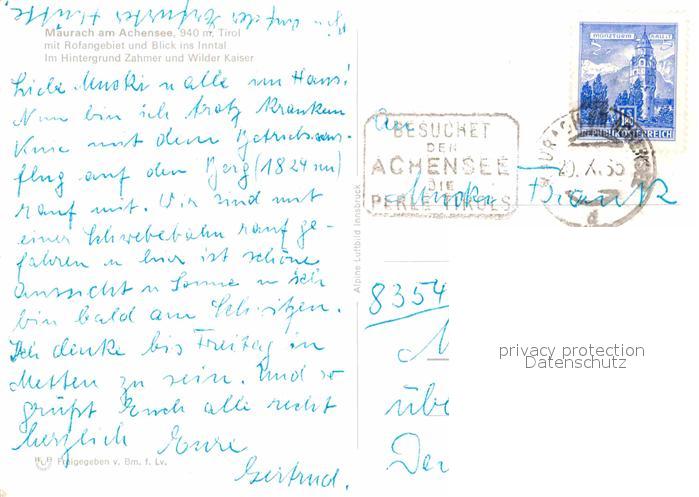 Maurach am Achensee, 940 m, Tirol
mit Rofangebiet und Blick ins Inntal
Im Hintergrund Zahmer und Wilder Kaiser
bin auf der Erfurter Hütte
Liebe Muski u alle im Haus!
Nun bin ich trotz kranken
Knie mit dem Betriebsaus-
flug auf den Berg (1824 m)
rauf mit. Wir sind mit
einer Schwebebahn rauf ge-
fahren u hier ist schöne
Aussicht u Sonne u ich
bin bald am Schwitzen.
Ich denke bis Freitag in
Metten zu sein. Und so
grüßt Euch alle recht
herzlich Eure
Gertrud.
Freigegeben v. Bm. f. Lv.
Alpine Luftbild Innsbruck
MÜNZTURM HALL
REPUBLIK ÖSTERREICH
BESUCHET
DEN
ACHENSEE
DIE
PERLE TIROLS
20. X. 65
d
An
Muski
8354
M
übe
privacy protection
Datenschutz